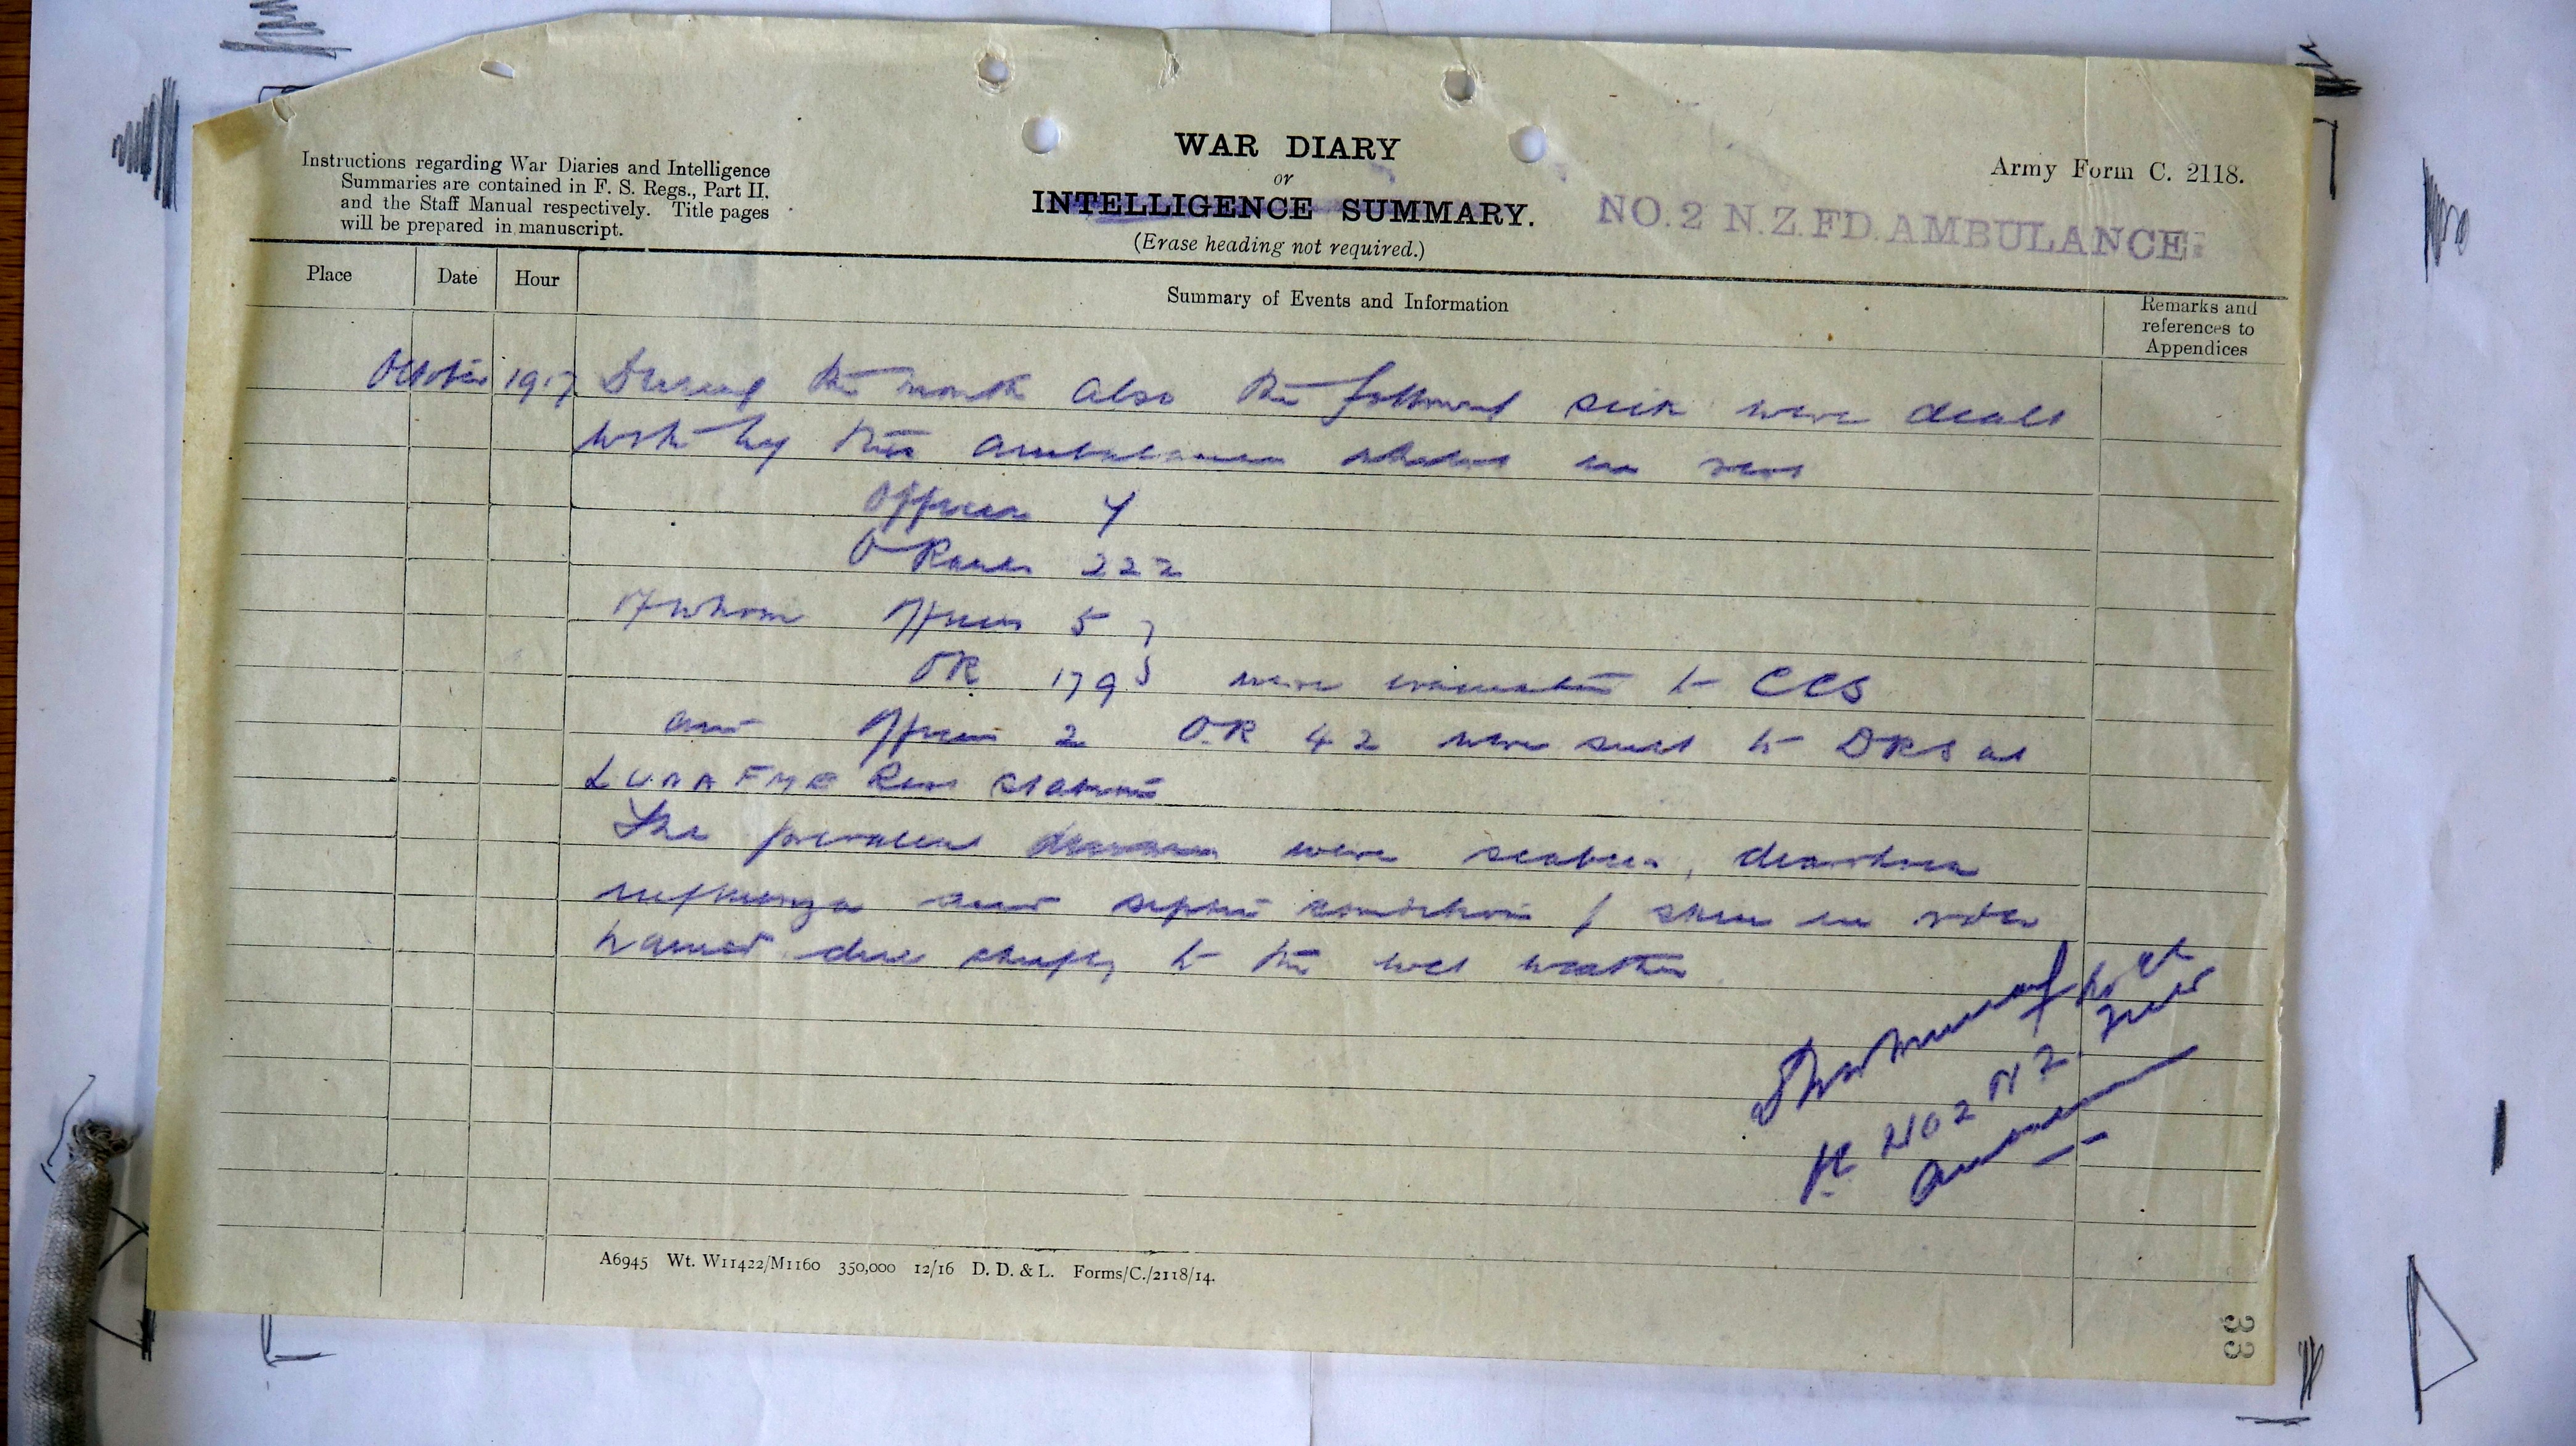 Instructions regarding War Diaries and Intelligence
Summaries are contained in F. S. Regs., Part II.
and the Staff Manual respectively. Title pages
will be prepared in manuscript.
WAR DIARY
or
INTELLIGENCE SUMMARY.
(Erase heading not required.)
Army Form C. 2118.
NO. 2 N.Z. FD. AMBULANCE.
Place
Date
Hour
Summary of Events and Information
Remarks and
references to
Appendices
October 1917
During the month also the following sick were dealt
with by this ambulance whilst in rest
Officers 7
O Ranks 222
of whom Officers 5 }
OR 179 } were evacuated to CCS
and Officers 2 OR 42 were sent to DRS at
Rest Station
The prevalent diseases were scabies, diarrhoea
influenza and septic conditions of skin in order
named due chiefly to the wet weather
Lt Col
No 2 N Z Field
Ambulance
A6945 Wt. W11422/M1160 350,000 12/16 D. D. & L. Forms/C./2118/14.
33